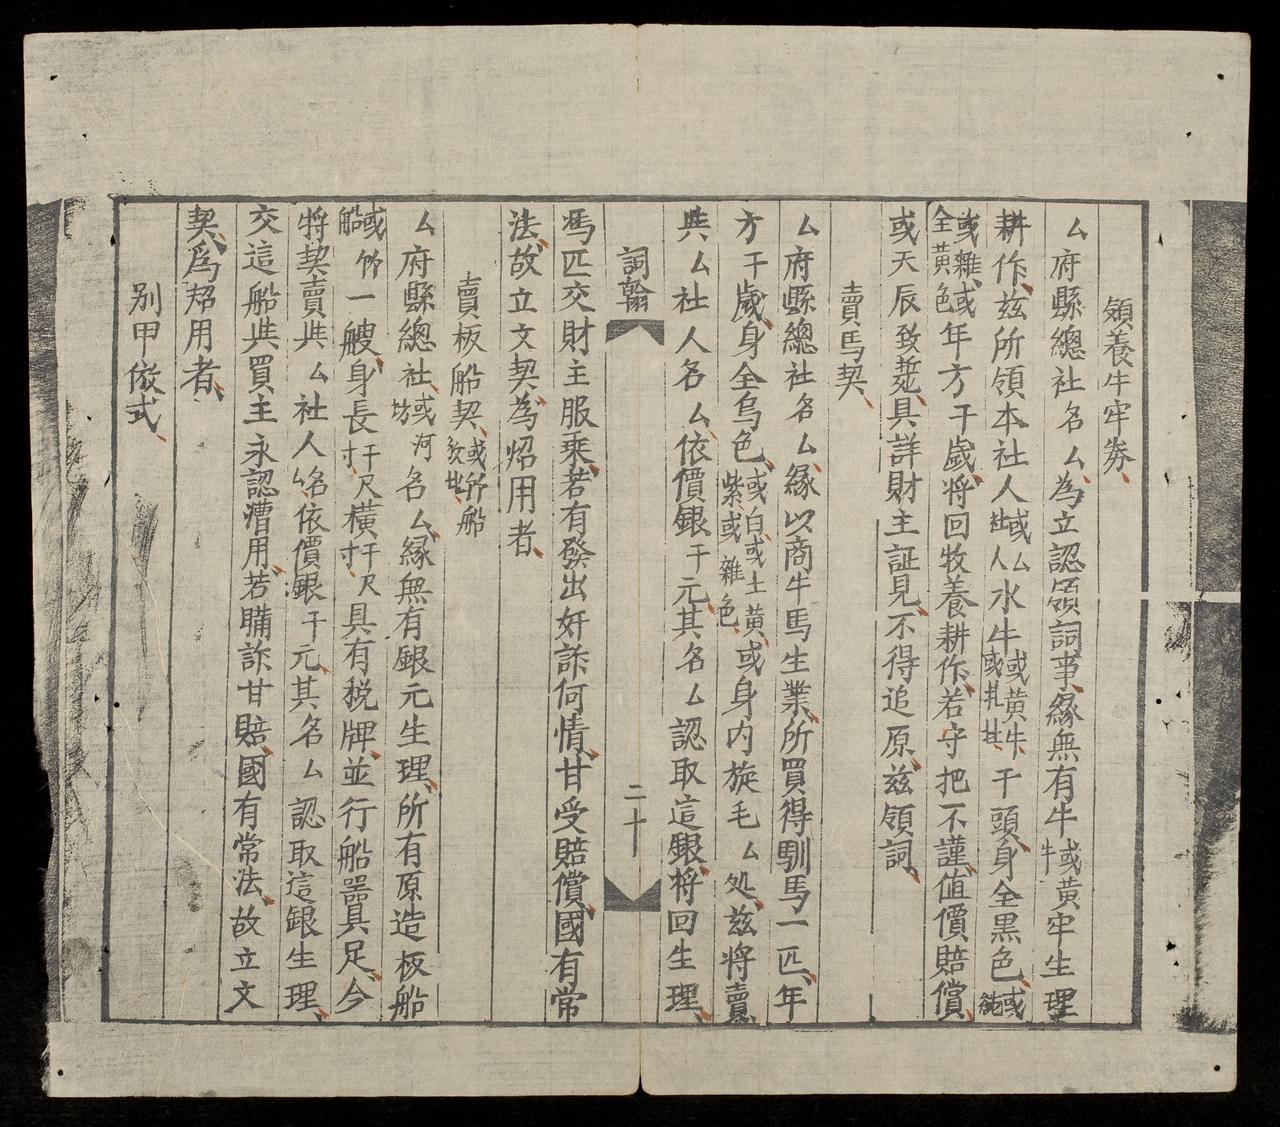 領養牛牢券
厶府縣總社名厶為立認領詞事緣無有牛或黃牛牢生理
耕作玆所領本社人或厶社人水牛或黃牛或𤙭𤙭干頭身全黑色或純
或雜或全黃色年方干歲将回牧養耕作若守把不謹值價賠償
或天辰致斃具詳財主証見不得追原玆領詞
賣馬契
厶府縣總社名厶緣以商牛馬生業所買得馴馬一匹年
方干歲身全烏色或白或土黃或紫或雜色或身内旋毛厶処玆将賣
與厶社人名厶依價銀干元其名厶認取這銀将回生理
詞翰
二十
馬匹交財主服乘若有發出奸詐何情甘受賠償國有常
法故立文契為炤用者
賣板船契或竹船
厶府縣總社或坊河名厶緣無有銀元生理所有原造板船
或竹船一艘身長干尺寸橫干尺寸具有税牌並行船噐具足今
将契賣與厶社人名厶依價銀干元其名厶認取這銀生理
交這船與買主永認漕用若購詐甘賠國有常法故立文
契為炤用者
别甲依式